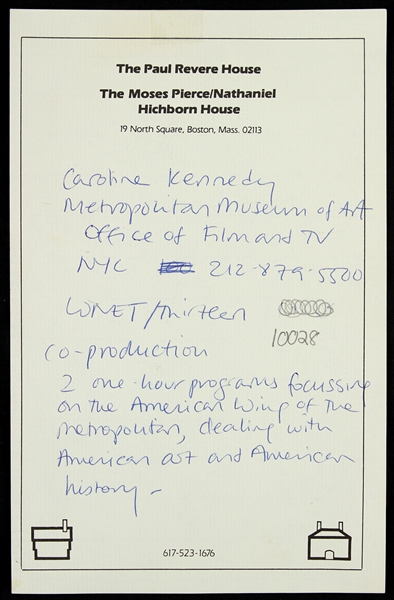 The Paul Revere House
The Moses Pierce/Nathaniel
Hichborn House
19 North Square, Boston, Mass. 02113
Caroline Kennedy
Metropolitan Museum of Art
Office of Film and TV
NYC 212-879-5500
WNET/Thirteen
10028
co-production
2 one-hour programs focussing
on the American Wing of the
Metropolitan, dealing with
American art and American
history -
617-523-1676